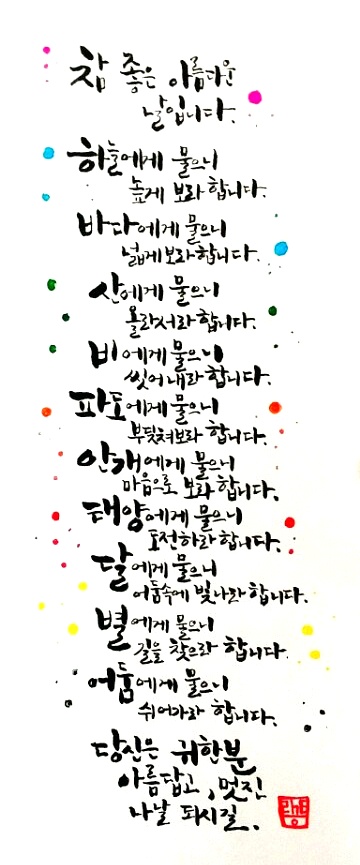 참 좋은 아름다운
날입니다.
하늘에게 물으니
높게 보라 합니다.
바다에게 물으니
넓게 보라 합니다.
산에게 물으니
올라서라 합니다.
비에게 물으니
씻어내라 합니다.
파도에게 물으니
부딪쳐보라 합니다.
안개에게 물으니
마음으로 보라 합니다.
태양에게 물으니
도전하라 합니다.
달에게 물으니
어둠속에 빛나라 합니다.
별에게 물으니
길을 찾으라 합니다.
어둠에게 물으니
쉬어가라 합니다.
당신은 귀한분
아름답고, 멋진
나날 되시길.